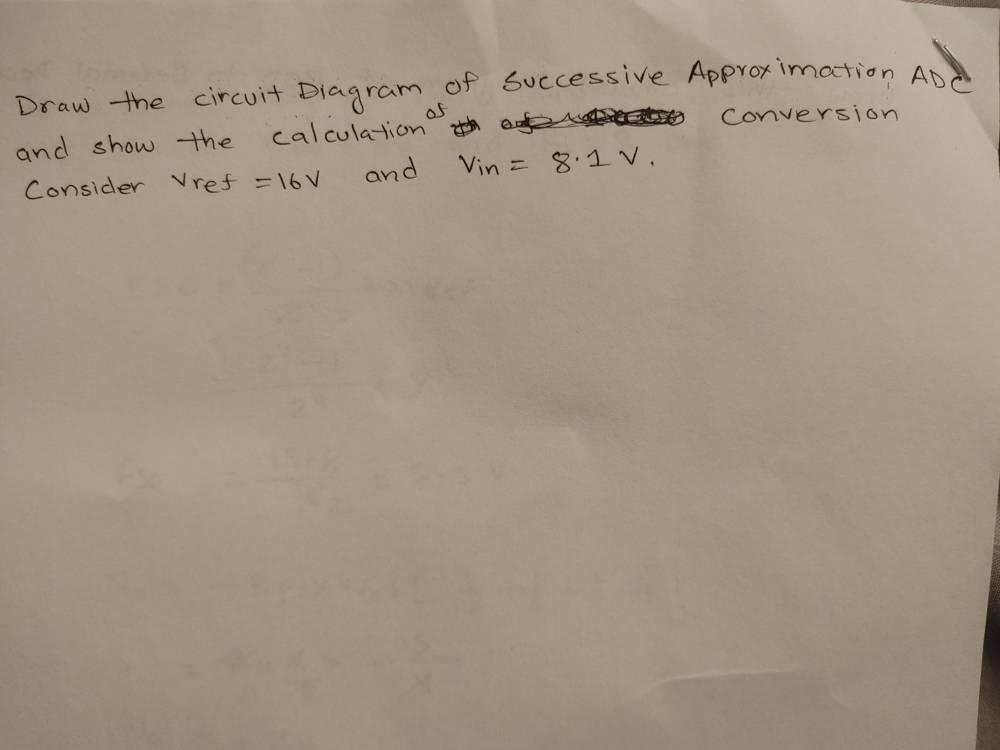 Draw the circuit Diagram of Successive Approximation ADC
and show the calculation of conversion
Consider Vref = 16V and Vin = 8.1 V.